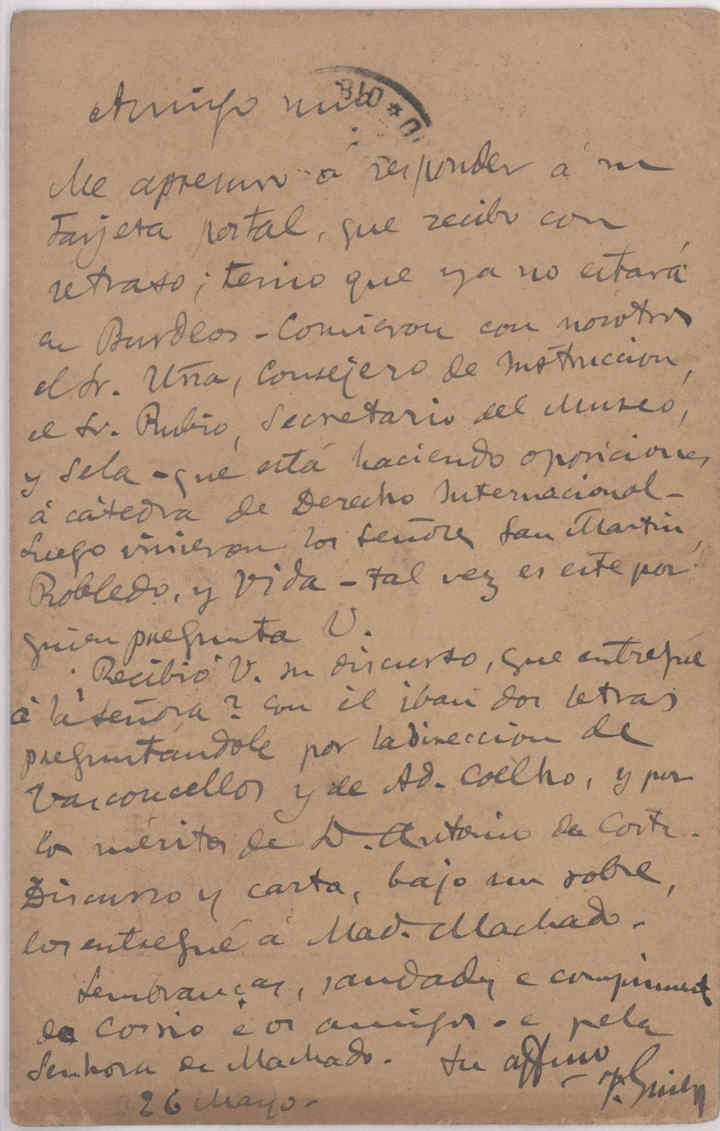 Amigo mio:
Me apresuro á responder á su
tarjeta postal, que recibo con
retraso; temo que ya no estará
en Burdeos - Comieron con nosotros
el Sr. Uña, Consejero de Instruccion,
el Sr. Rubio, Secretario del Museo,
y Sela - que está haciendo oposiciones
á cátedra de Derecho Internacional -
Luego vinieron los señores San Martin,
Robledo, y Vida - tal vez es este por
quien pregunta V.
Recibió V. su discurso, que entregué
á la señora? Con él iban dos letras
preguntándole por la direccion de
Vasconcellos y de Ad. Coelho, y por
los méritos de D. Antonio da Costa.
Discurso y carta, bajo un sobre,
los entregué á Mad. Machado.
Lembranças, saudades e compriment
de Cossio e os amigos - e pela
Senhora de Machado. Su affmo
F. Giner
26 Mayo.